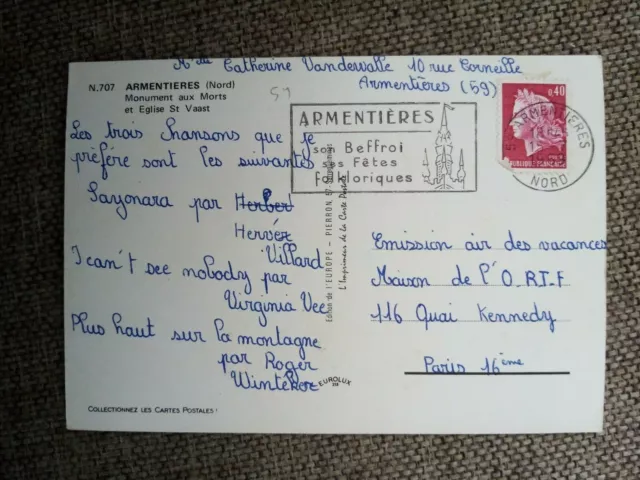 Melle Catherine Vandewalle 10 rue Corneille
Armentières (59)
N.707 ARMENTIERES (Nord)
Monument aux Morts
et Eglise St Vaast
59
Les trois Chansons que je
préfére sont les suivantes
Sayonara par Herbert
Hervér
Villard
I can't see nobody par
Virginia Vee
Plus haut sur la montagne
par Roger
Winterer
COLLECTIONNEZ LES CARTES POSTALES !
ARMENTIÈRES
son Beffroi
ses Fêtes
folkloriques
0,40
REPUBLIQUE FRANÇAISE
ARMENTIERES
NORD
Edition de l'EUROPE - PIERRON, 57-
L'Imprimeur de la Carte Postale
EUROLUX
Emission air des vacances
Maison de l'O.R.T.F
116 Quai Kennedy
Paris 16ème